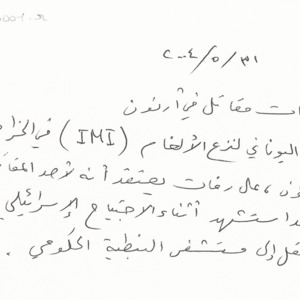 ٢٠٠٤/٥/٣١
ات مقاتل في أرنون
اليوناني لنزع الألغام (IMI) في الخرا
ون، على رفات يعتقد أنه لأحد المقا
د استشهد أثناء الاجتياح الإسرائيلي
قل إلى مستشفى النبطية الحكومي.